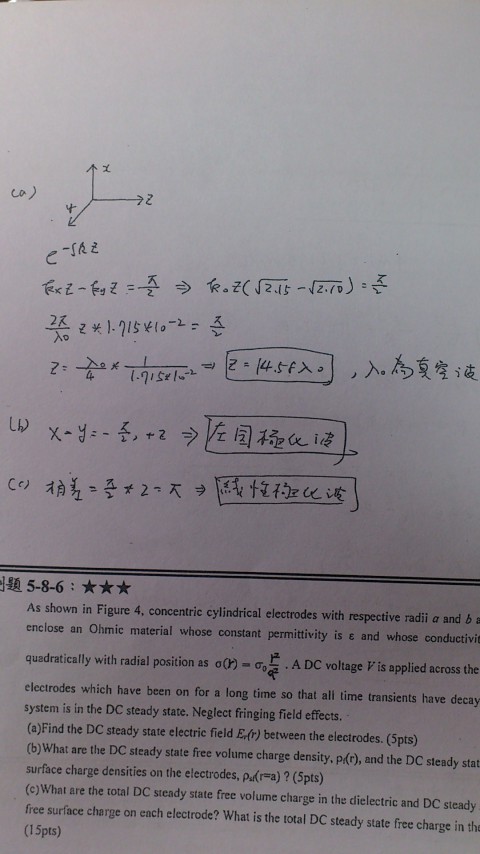 (a)
x
y
z
e^-jkz
kxz - kyz = π/2 ⇒ k₀z(√2.15 - √2.10) = π/2
2π/λ₀ z * 1.715*10^-2 = π/2
z = λ₀/4 * 1/1.715*10^-2 ⇒ z = 14.58λ₀ , λ₀為真空波
(b) x - y = - π/2, +z ⇒ 左圓極化波
(c) 相差 = π/2 * 2 = π ⇒ 線性極化波
例題 5-8-6:★★★
As shown in Figure 4, concentric cylindrical electrodes with respective radii a and b
enclose an Ohmic material whose constant permittivity is ε and whose
quadratically with radial position as σ(r) = σ₀ r²/a² . A DC voltage V is applied across the
electrodes which have been on for a long time so that all time transients have
system is in the DC steady state. Neglect fringing field effects.
(a)Find the DC steady state electric field Er(r) between the electrodes. (5pts)
(b)What are the DC steady state free volume charge density, ρf(r), and the DC steady
surface charge densities on the electrodes, (r=a) ? (5pts)
(c)What are the total DC steady state free volume charge in the dielectric and DC steady
free surface charge on each electrode? What is the total DC steady state free charge in
(15pts)